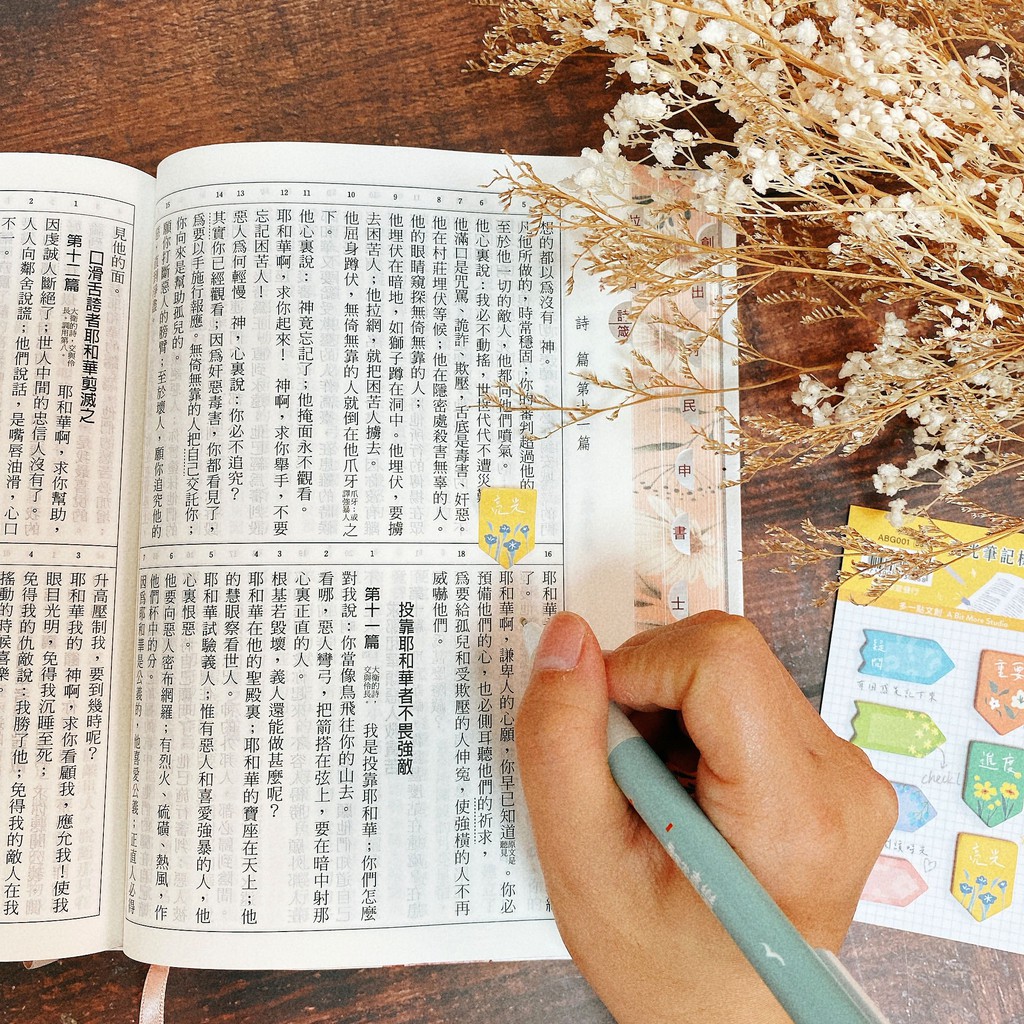 創
出
民
申
書
士
詩篇
詩篇第十一篇
5
6
7
8
9
10
11
12
13
14
15
想的都以爲沒有　神。
凡他所做的，時常穩固；你的審判超過他的
至於他一切的敵人，他都向他們噴氣。
他心裏說：我必不動搖，世世代代不遭災難
他滿口是咒罵、詭詐、欺壓，舌底是毒害、奸惡。
他在村莊埋伏等候；他在隱密處殺害無辜的人。
他的眼睛窺探無倚無靠的人；
他埋伏在暗地，如獅子蹲在洞中。他埋伏，要擄
去困苦人；他拉網，就把困苦人擄去。
他屈身蹲伏，無倚無靠的人就倒在他爪牙爪牙：或譯強暴人之
下。
他心裏說：　神竟忘記了；他掩面永不觀看。
耶和華啊，求你起來！　神啊，求你舉手，不要
忘記困苦人！
惡人爲何輕慢　神，心裏說：你必不追究？
其實你已經觀看；因爲奸惡毒害，你都看見了，
爲要以手施行報應。無倚無靠的人把自己交託你；
你向來是幫助孤兒的。
願你打斷惡人的膀臂；至於壞人，願你追究他的
亮光
16
18
1
2
3
4
5
6
7
耶和華
了。
耶和華啊，謙卑人的心願，你早已知道原文是聽見。你必
預備他們的心，也必側耳聽他們的祈求，
爲要給孤兒和受欺壓的人伸冤，使強橫的人不再
威嚇他們。
投靠耶和華者不畏強敵
第十一篇　大衛的詩，交與伶長。
我是投靠耶和華；你們怎麼
對我說：你當像鳥飛往你的山去。
看哪，惡人彎弓，把箭搭在弦上，要在暗中射那
心裏正直的人。
根基若毀壞，義人還能做甚麼呢？
耶和華在他的聖殿裏；耶和華的寶座在天上；他
的慧眼察看世人。
耶和華試驗義人；惟有惡人和喜愛強暴的人，他
心裏恨惡。
他要向惡人密布網羅；有烈火、硫磺、熱風，作
他們杯中的分。
因爲耶和華是公義的，他喜愛公義；正直人必得
見他的面。
口滑舌誇者耶和華剪滅之
第十二篇　大衛的詩，交與伶長。調用第八。
1
2
耶和華啊，求你幫助，
因虔誠人斷絕了；世人中間的忠信人沒有了。
人人向鄰舍說謊；他們說話，是嘴唇油滑，心口
不一。
3
4
升高壓制我，要到幾時呢？
耶和華我的　神啊，求你看顧我，應允我！使我
眼目光明，免得我沉睡至死；
免得我的仇敵說：我勝了他；免得我的敵人在我
搖動的時候喜樂。
ABG001
光筆記標
多一點文創 A Bit More Studio
疑問
重要
check!
進度
亮光